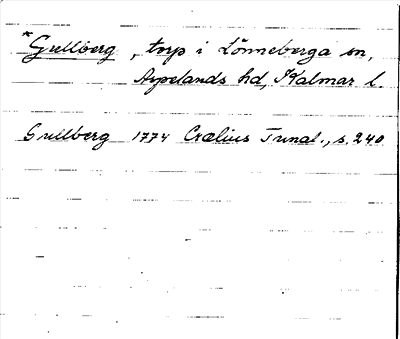 *Grellberg, torp i Lönneberga sn,
Aspelands hd, Kalmar l.
Grellberg 1774 Crælius Tunal., s. 240